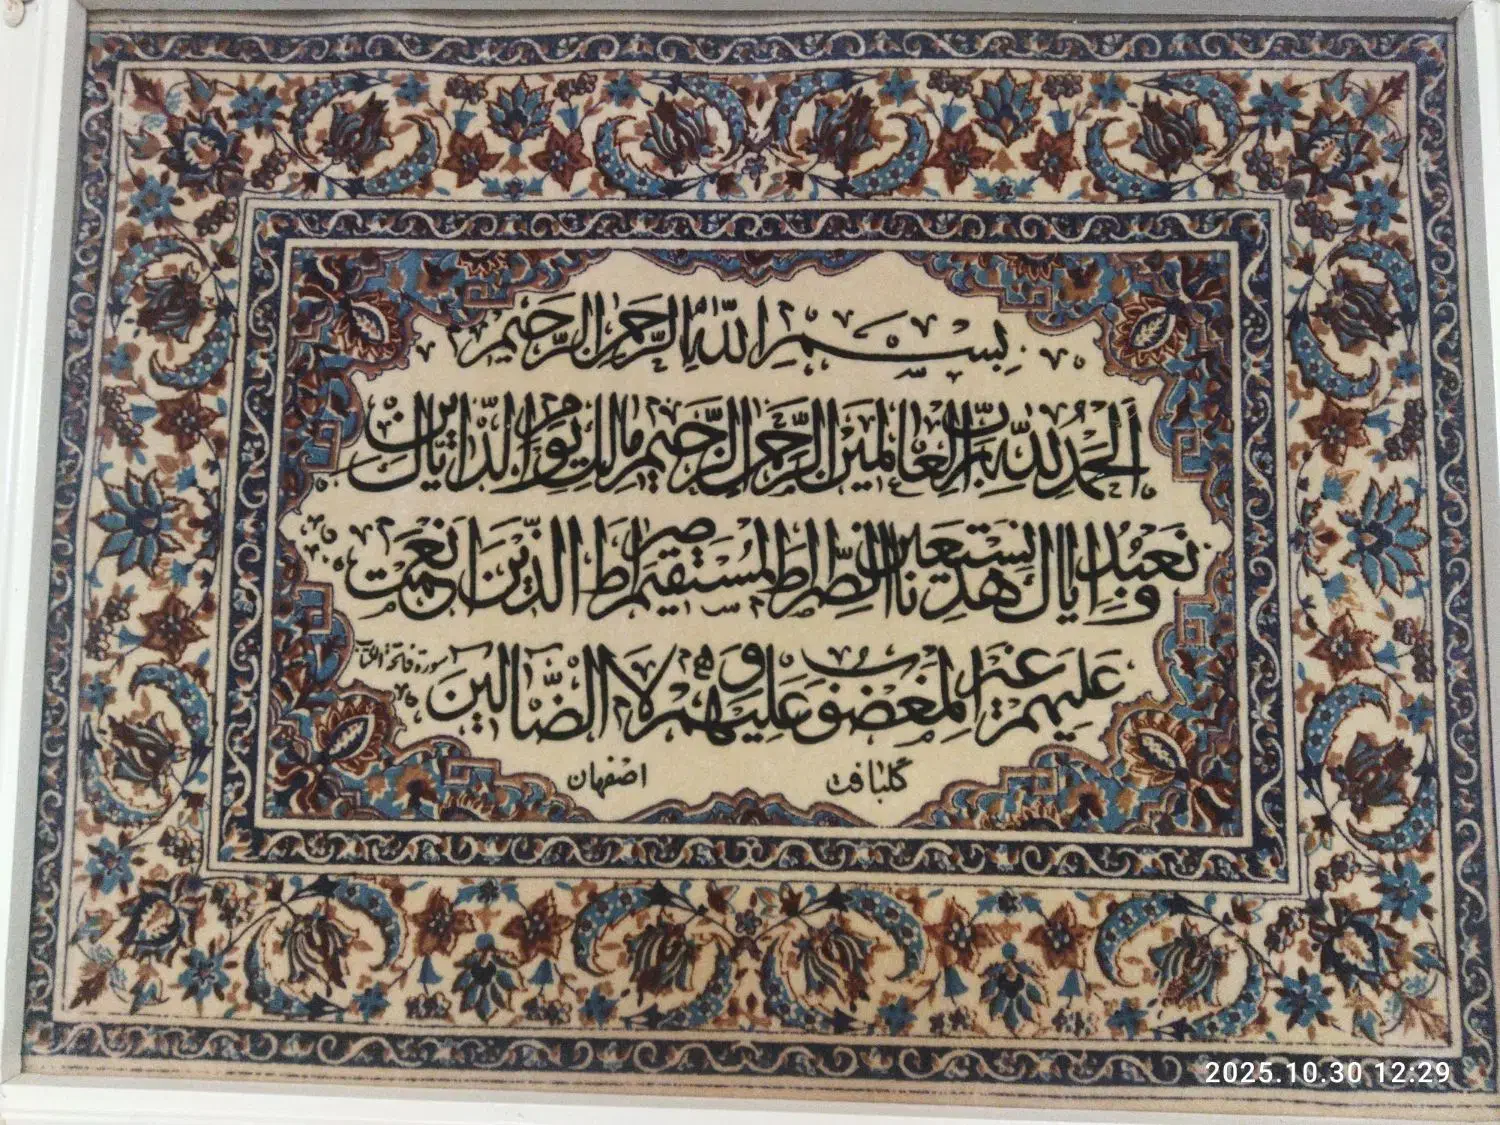 بسم الله الرحمن الرحيم
الحمد لله رب العالمين الرحمن الرحيم مالك يوم الدين اياك
نعبد و اياك نستعين اهدنا الصراط المستقيم صراط الذين انعمت
عليهم غير المغضوب عليهم ولا الضالين
سورة فاتحة الكتاب
گلبافت اصفهان
2025.10.30 12:29